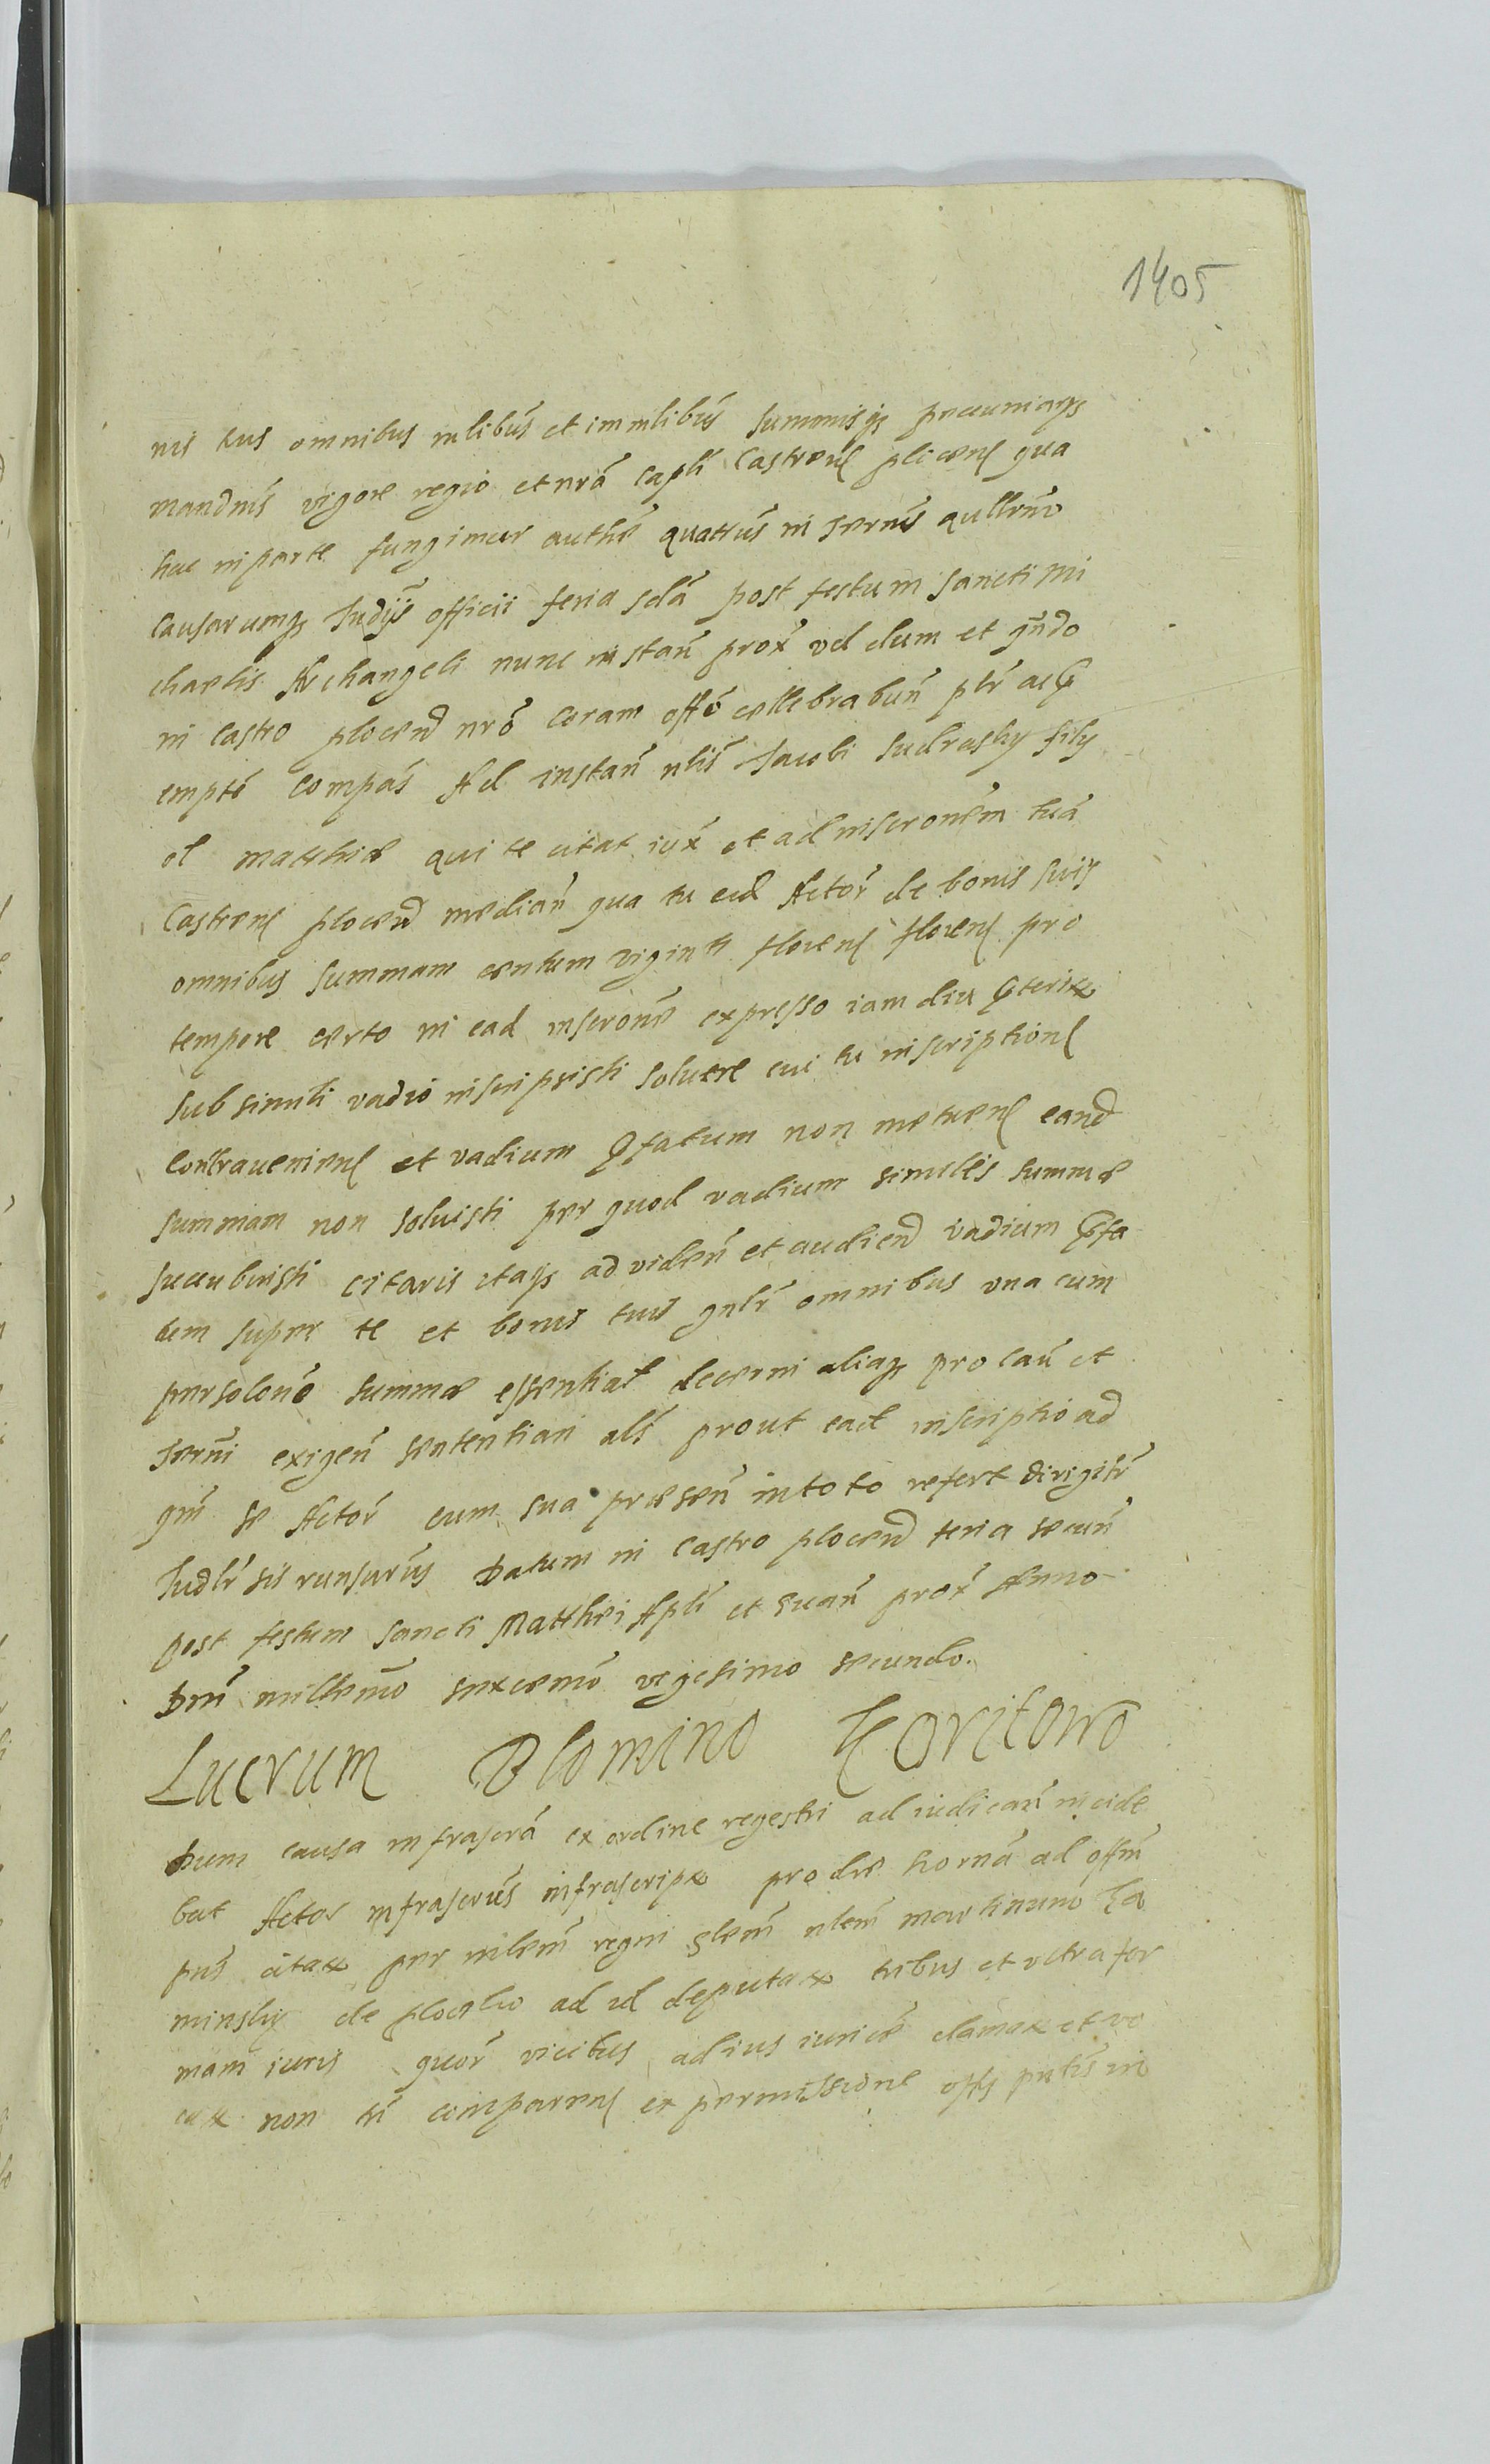 1405
nis tuis omnibus mlibus et immlibus summisq pecuniarys
mandms vigore regio et nrã capli Castren plicen qua
hac in parte fungimur authe quattus in termis qullrmo
causarumq Judys officii feria sda post festum sancti Mi
chaelis Archangeli nunc instan prox vel dum et qndo
in Castro plocen nro coram offo cellebrabun plr ac
empte compas Ad instan nlis Jacobi Sudrasky fily
ol Matthiæ qui te citat jux et ad inscronem tuã
Castren plocen median qua tu eid Actor de bonis suis
omnibus summam centum viginti floren floren pro
tempore certo in ead inscrone expresso iam diu pterito
sub simili vadio inscripsisti soluere cui tu inscriptione
contraueniens et vadium pfatum non metuens eand
summam non soluisti per quod vadium similis summæ
succubuisti citaris itaq ad viden et audiend vadium pfa
tum super te et bonis tuis gnlr omnibus vna cum
persolone summæ essential decerni aliaq pro cau et
termi exigen sententiari als prout ead inscriptio ad
qm se Actor cum sua præsen in toto refert dirigitr
Judlr sis runsurus Datum in Castro plocen feria secun
post festum sancti Matthei Apli et Euan prox Anno
Dni millemo sexcemo vigesimo secundo.
Lucrum Dlomino
Dum causa infrascrã ex ordine regestri ad iudican incide
bat Actor infrascrus infrascripto pro die hornã ad offm
pns citato per milem regni glem nlem Martinum La
minsky de plocko ad id deputato tribus et vltra for
mam iuris quor vicibus ad ius iurice clamato et vo
cato non tn comparens ex permissione offy pntis in